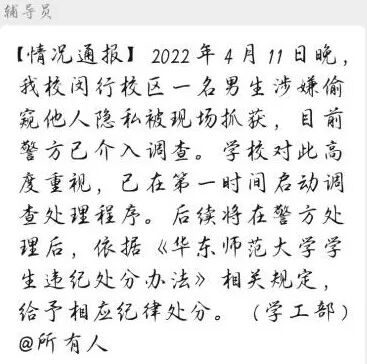 辅导员
【情况通报】2022年4月11日晚，
我校闵行校区一名男生涉嫌偷
窥他人隐私被现场抓获，目前
警方已介入调查。学校对此高
度重视，已在第一时间启动调
查处理程序。后续将在警方处
理后，依据《华东师范大学学
生违纪处分办法》相关规定，
给予相应纪律处分。（学工部）
@所有人